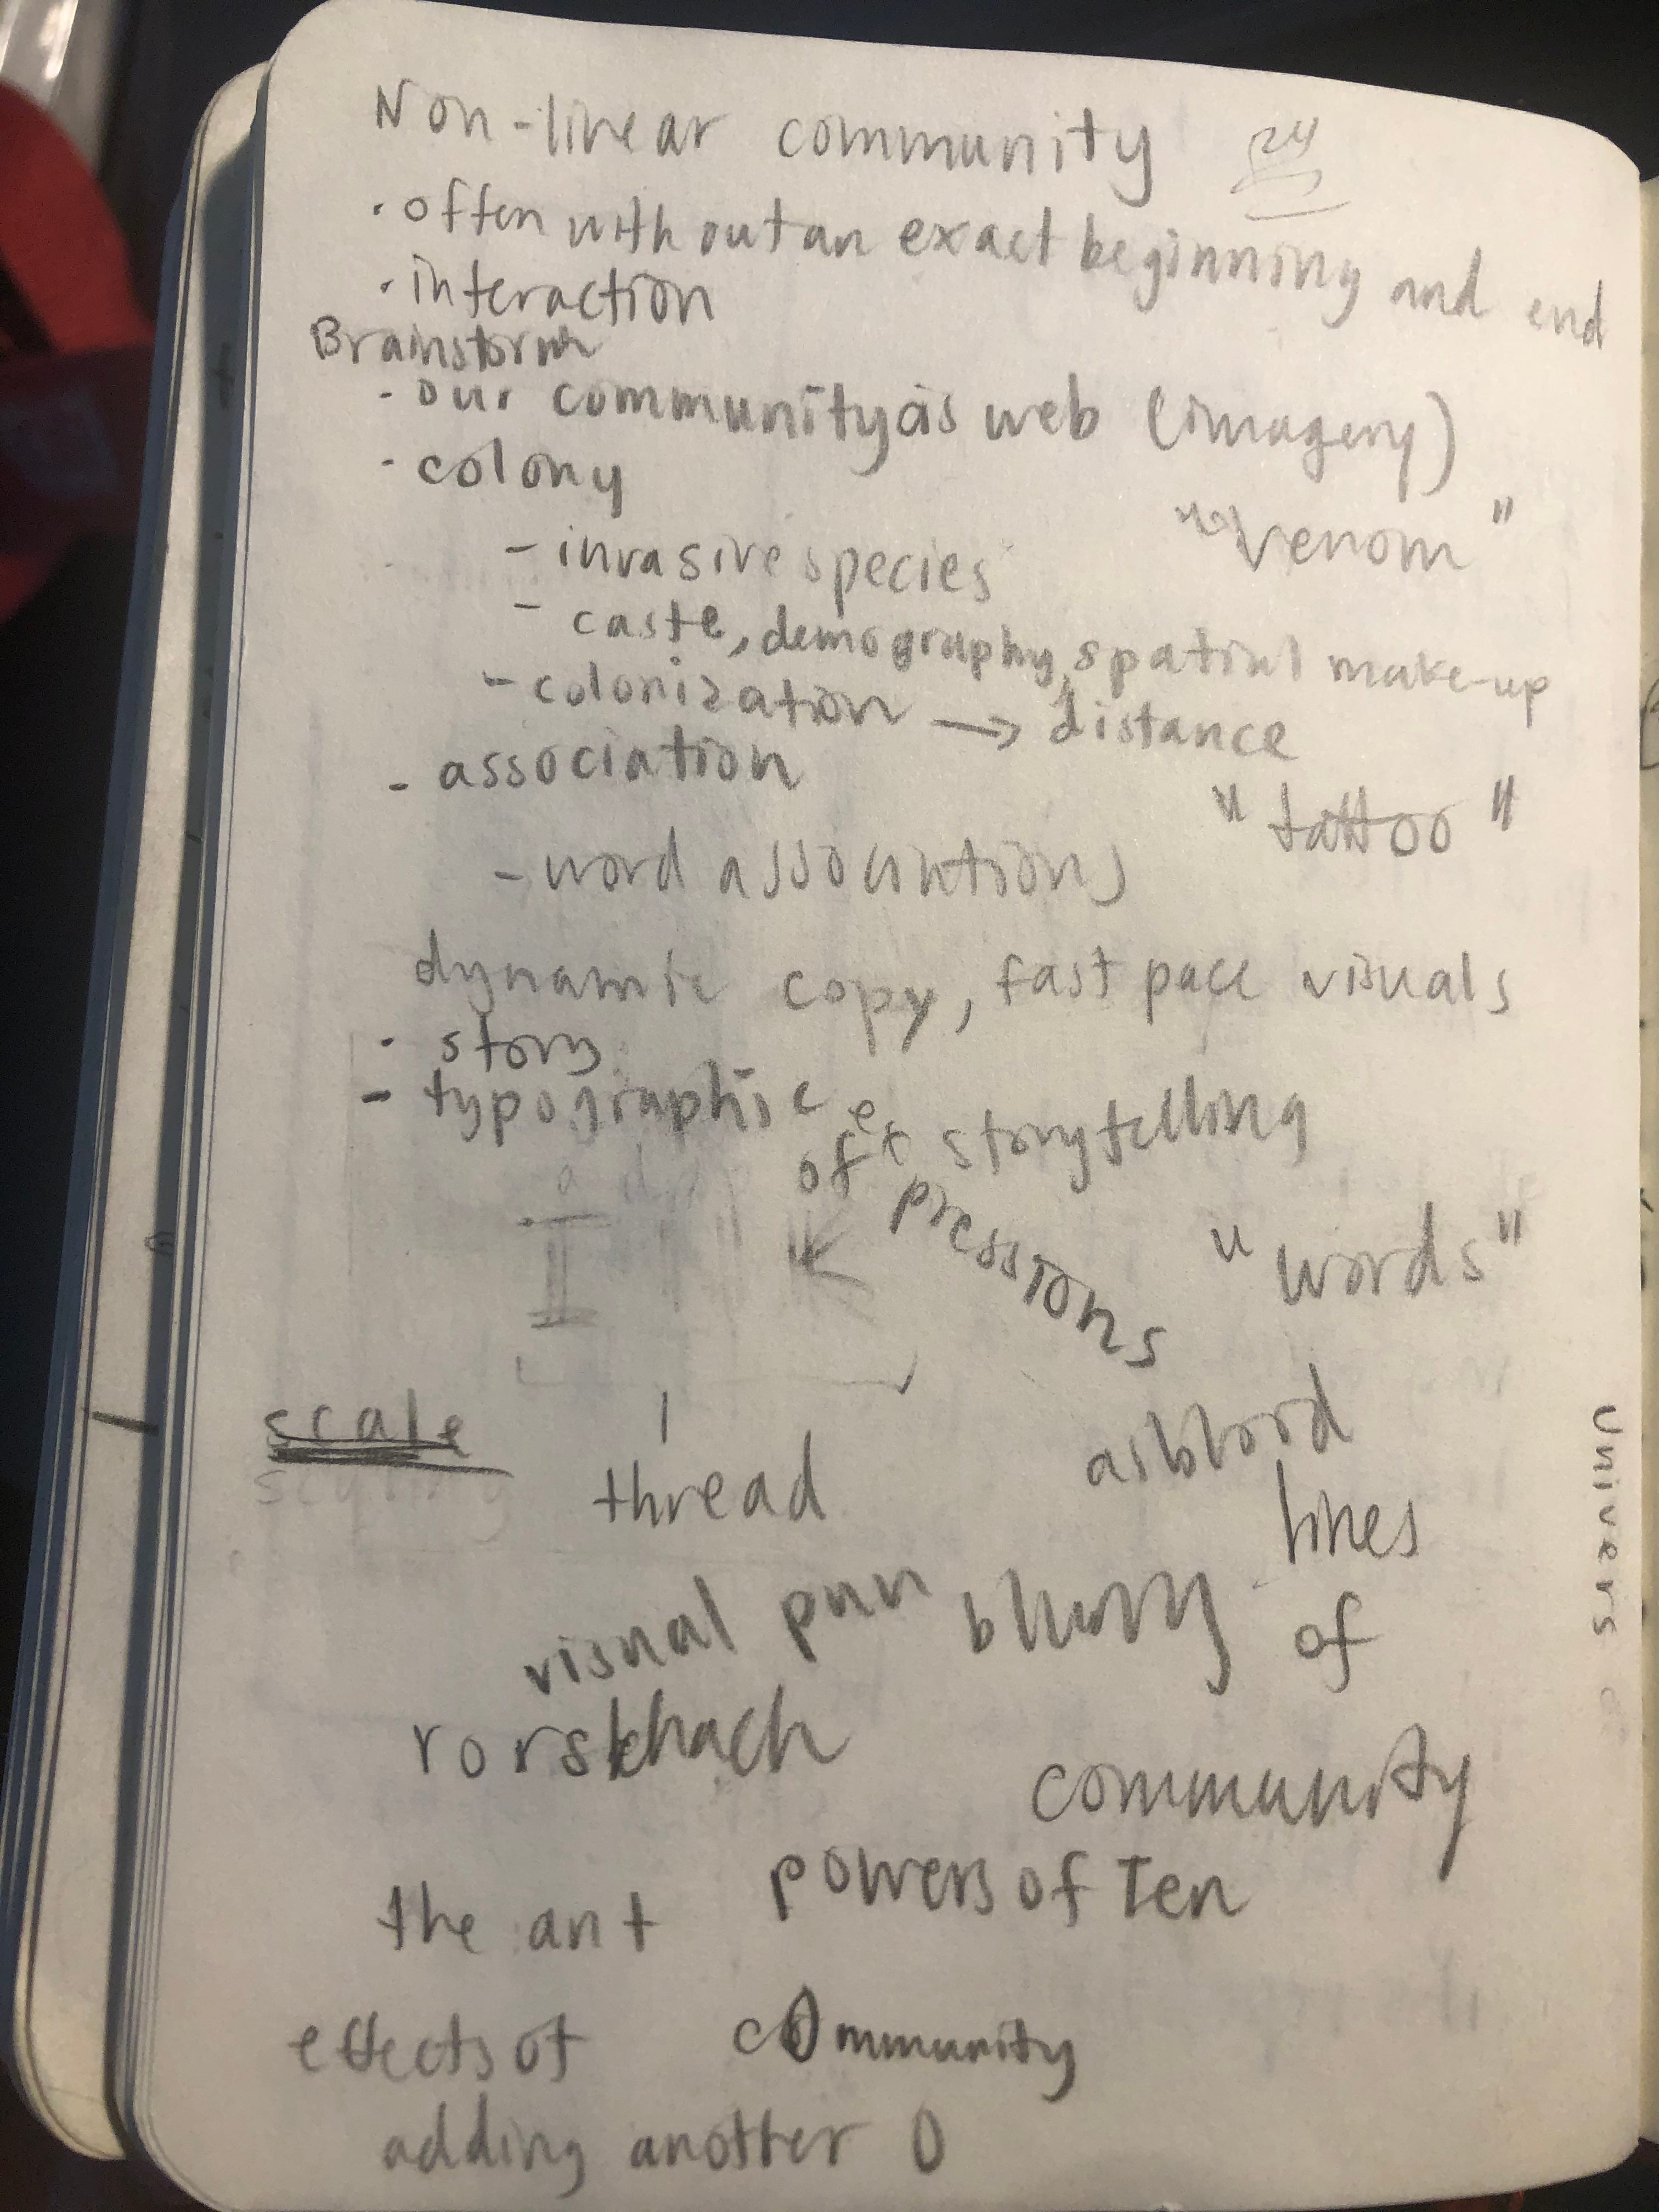 Non-linear community 24
· often without an exact beginning and end
· interaction
Brainstorm
- our community as web (imagery)
- colony
"Venom"
- invasive species
- caste, demography, spatial make-up
- colonization → distance
- association
"tattoo"
- word associations
dynamic copy, fast pace visuals
· story
- typographic storytelling
of expressions
"words"
scale
thread
lines
visual pun blurry of
rorskhach
community
powers of Ten
the ant
effects of community
adding another 0
Univers